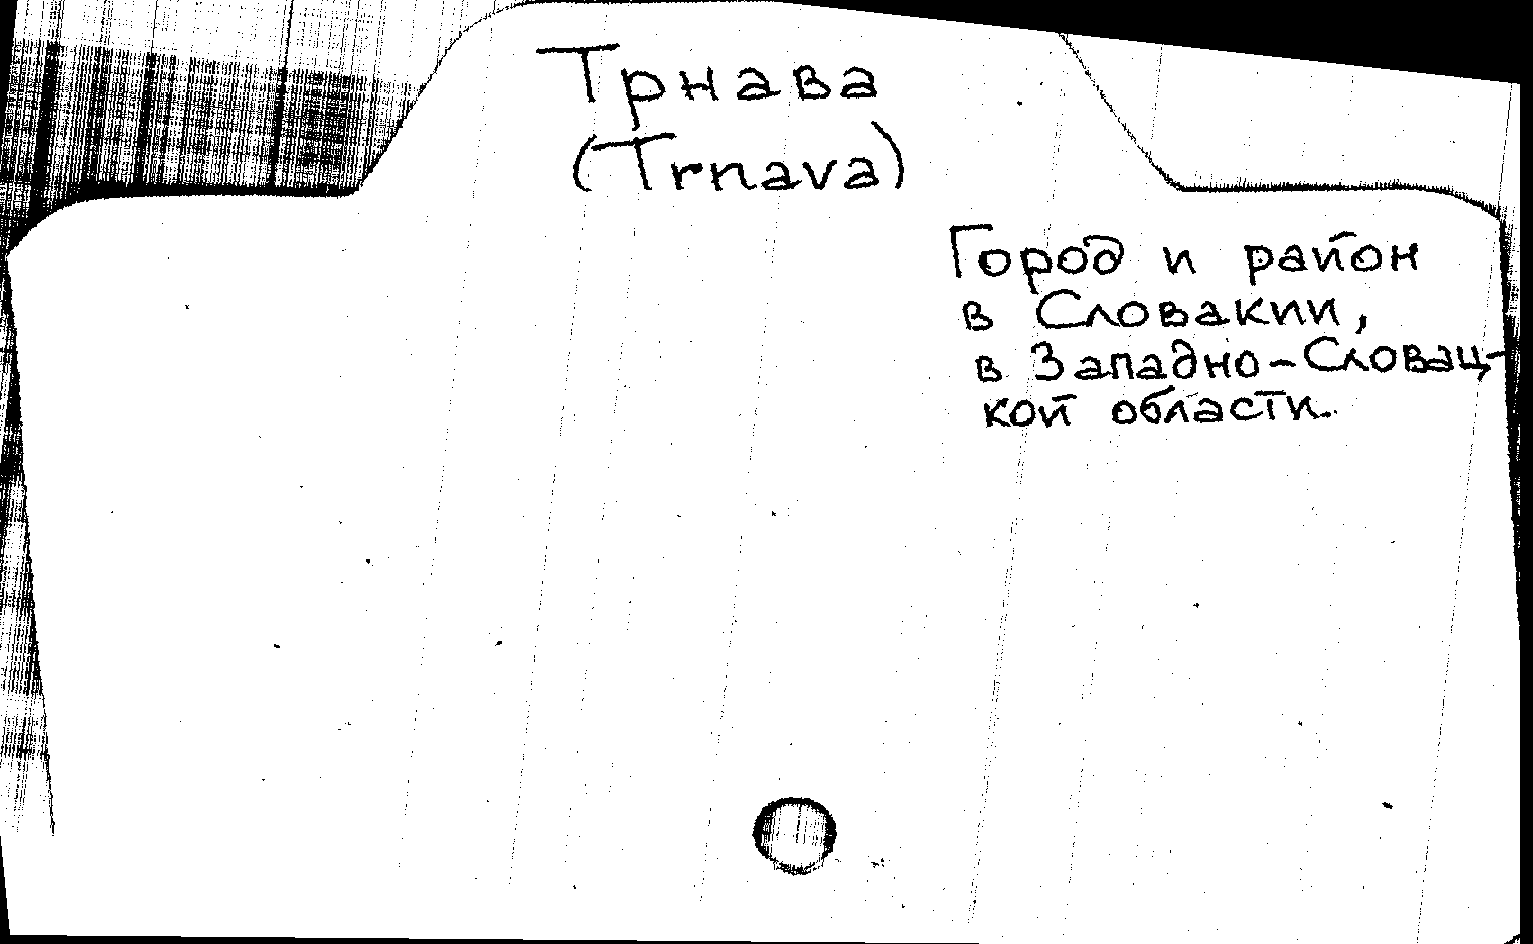 Трнава
(Trnava)
Город и район
в Словакии,
в Западно-Словац-
кой области.